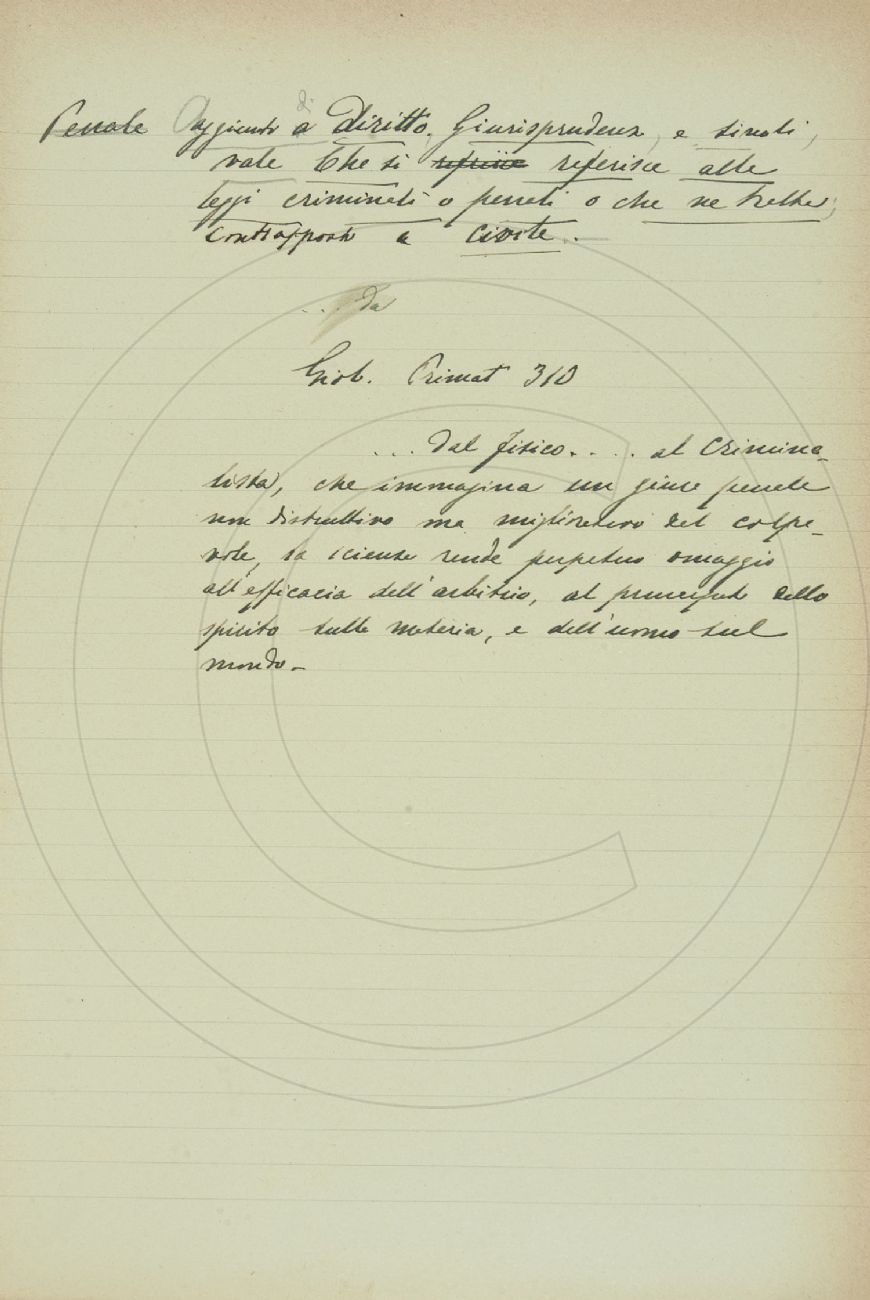 di
Penale Aggiunto a Diritto, Giurisprudenza, e simili,
vale Che si referisce alle
leggi criminali o penali o che ne tratta;
contrapposto a civile.
... da
Giob. Primat 310
... dal fisico.... al crimina-
lista, che immagina un giure penale
non distruttivo ma miglioratore del colpe-
vole, la scienza rende perpetuo omaggio
all'efficacia dell'arbitrio, al principato dello
spirito sulla materia, e dell'uomo sul
mondo.-